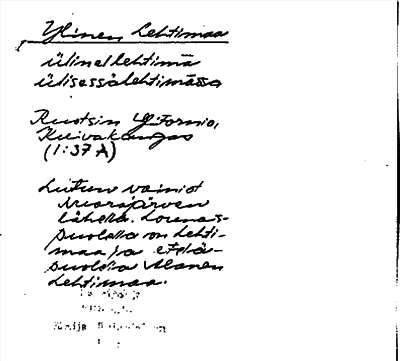 Ylinen Lehtimaa
ülinellehtimä
ülisessälehtimässä
Ruotsin Ylitornio,
Kuivakangas
(1:37 A)
Luitun vainiot
Vuorajärven
lähellä. Lounas-
puolella on Lehti-
maa ja etelä-
puolella Alanen
Lehtimaa.